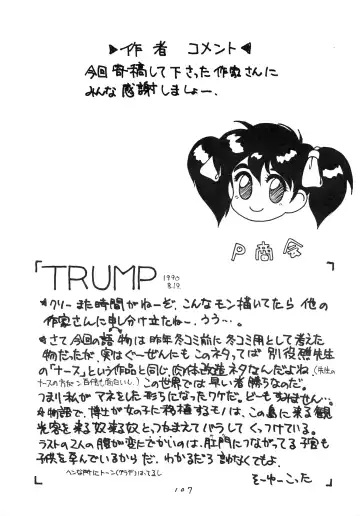 ▶作者 コメント◀
今回寄稿して下さった作家さんに
みんな感謝しましょー.
P商会
「TRUMP 1990 8.19」
クリーまた時間がねーぞ. こんなモン描いてたら 他の
作家さんに申し分け立たねー. うう….
さて今回の語 物は昨年冬コミ前に冬コミ用として考えた
物だったが 実はぐーぜんにも このネタってば 別役憩先生
の「ナース」という作品と同じ 肉体改造ネタなんだよね(先生の
ナースの方が 百倍も面白いし.) この世界では 早い者勝ちなのだ.
つまり私がマネをした形ちになったワケだ. どーもすいません….
物語で, 博士が女の子に移植するモノは, この島に来る観
光客を来る奴来る奴とっつかまえてバラして くっつけている.
ラストの2人の腹が変にでかいのは, 肛門につながってる子宮も
子供を孕んでいるからだ. わかるだろ 訳なくてもよ.
ヘンな所にトーン(グラデ)はってるし
そーゆーこった
107